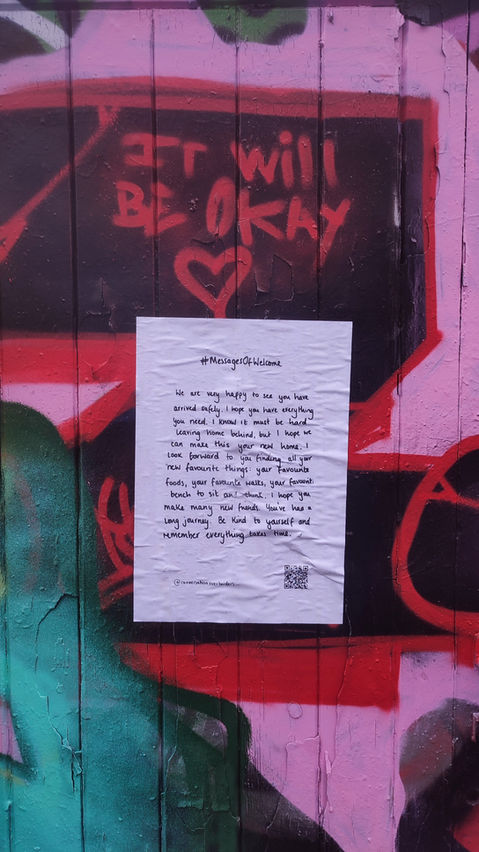 IT Will
BE OKAY
#MessagesOfWelcome
We are very happy to see you have
arrived safely. I hope you have everything
you need. I know it must be hard
leaving home behind, but I hope we
can make this your new home. I
look forward to you finding all your
new favourite things: your favourite
foods, your favourite walks, your favourite
bench to sit and think. I hope you
make many new friends. You've had a
long journey. Be kind to yourself and
remember everything takes time.
@conversationsoverborders